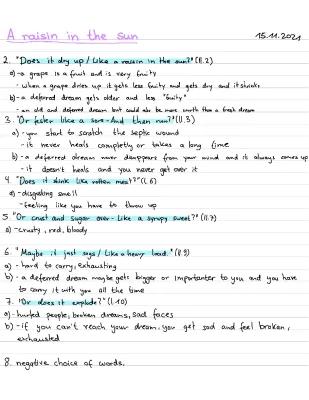 A raisin in the sun 15.11.2021
2. "Does it dry up / Like a raisin in the sun?" (ll.2)
a) - a grape is a fruit and is very fruity
- when a grape dries up it gets less fruity and gets dry and it shrinks
b) - a deferred dream gets older and less "fruity"
- an old and deferred dream but could also be more worth than a fresh dream
3. "Or fester like a sore - And then run?" (ll.3)
a) - you start to scratch the septic wound
- it never heals completly or takes a long time
b) - a deferred dream never disappears from your mind and it always comes up
- it doesn't heals and you never get over it
4. "Does it stink like rotten meat?" (l.6)
a) - disgusting smell
- feeling like you have to throw up
5. "Or crust and sugar over - like a syrupy sweet?" (ll.7)
a) - crusty, red, bloody
6. "Maybe it just sags / Like a heavy load." (ll.9)
a) - hard to carry, exhausting
b) - a deferred dream maybe gets bigger or importanter to you and you have
to carry it with you all the time
7. "Or does it explode?" (l.10)
a) - hurted people, broken dreams, sad faces
b) - if you can't reach your dream, you get sad and feel broken,
exhausted
8. negative choice of words.